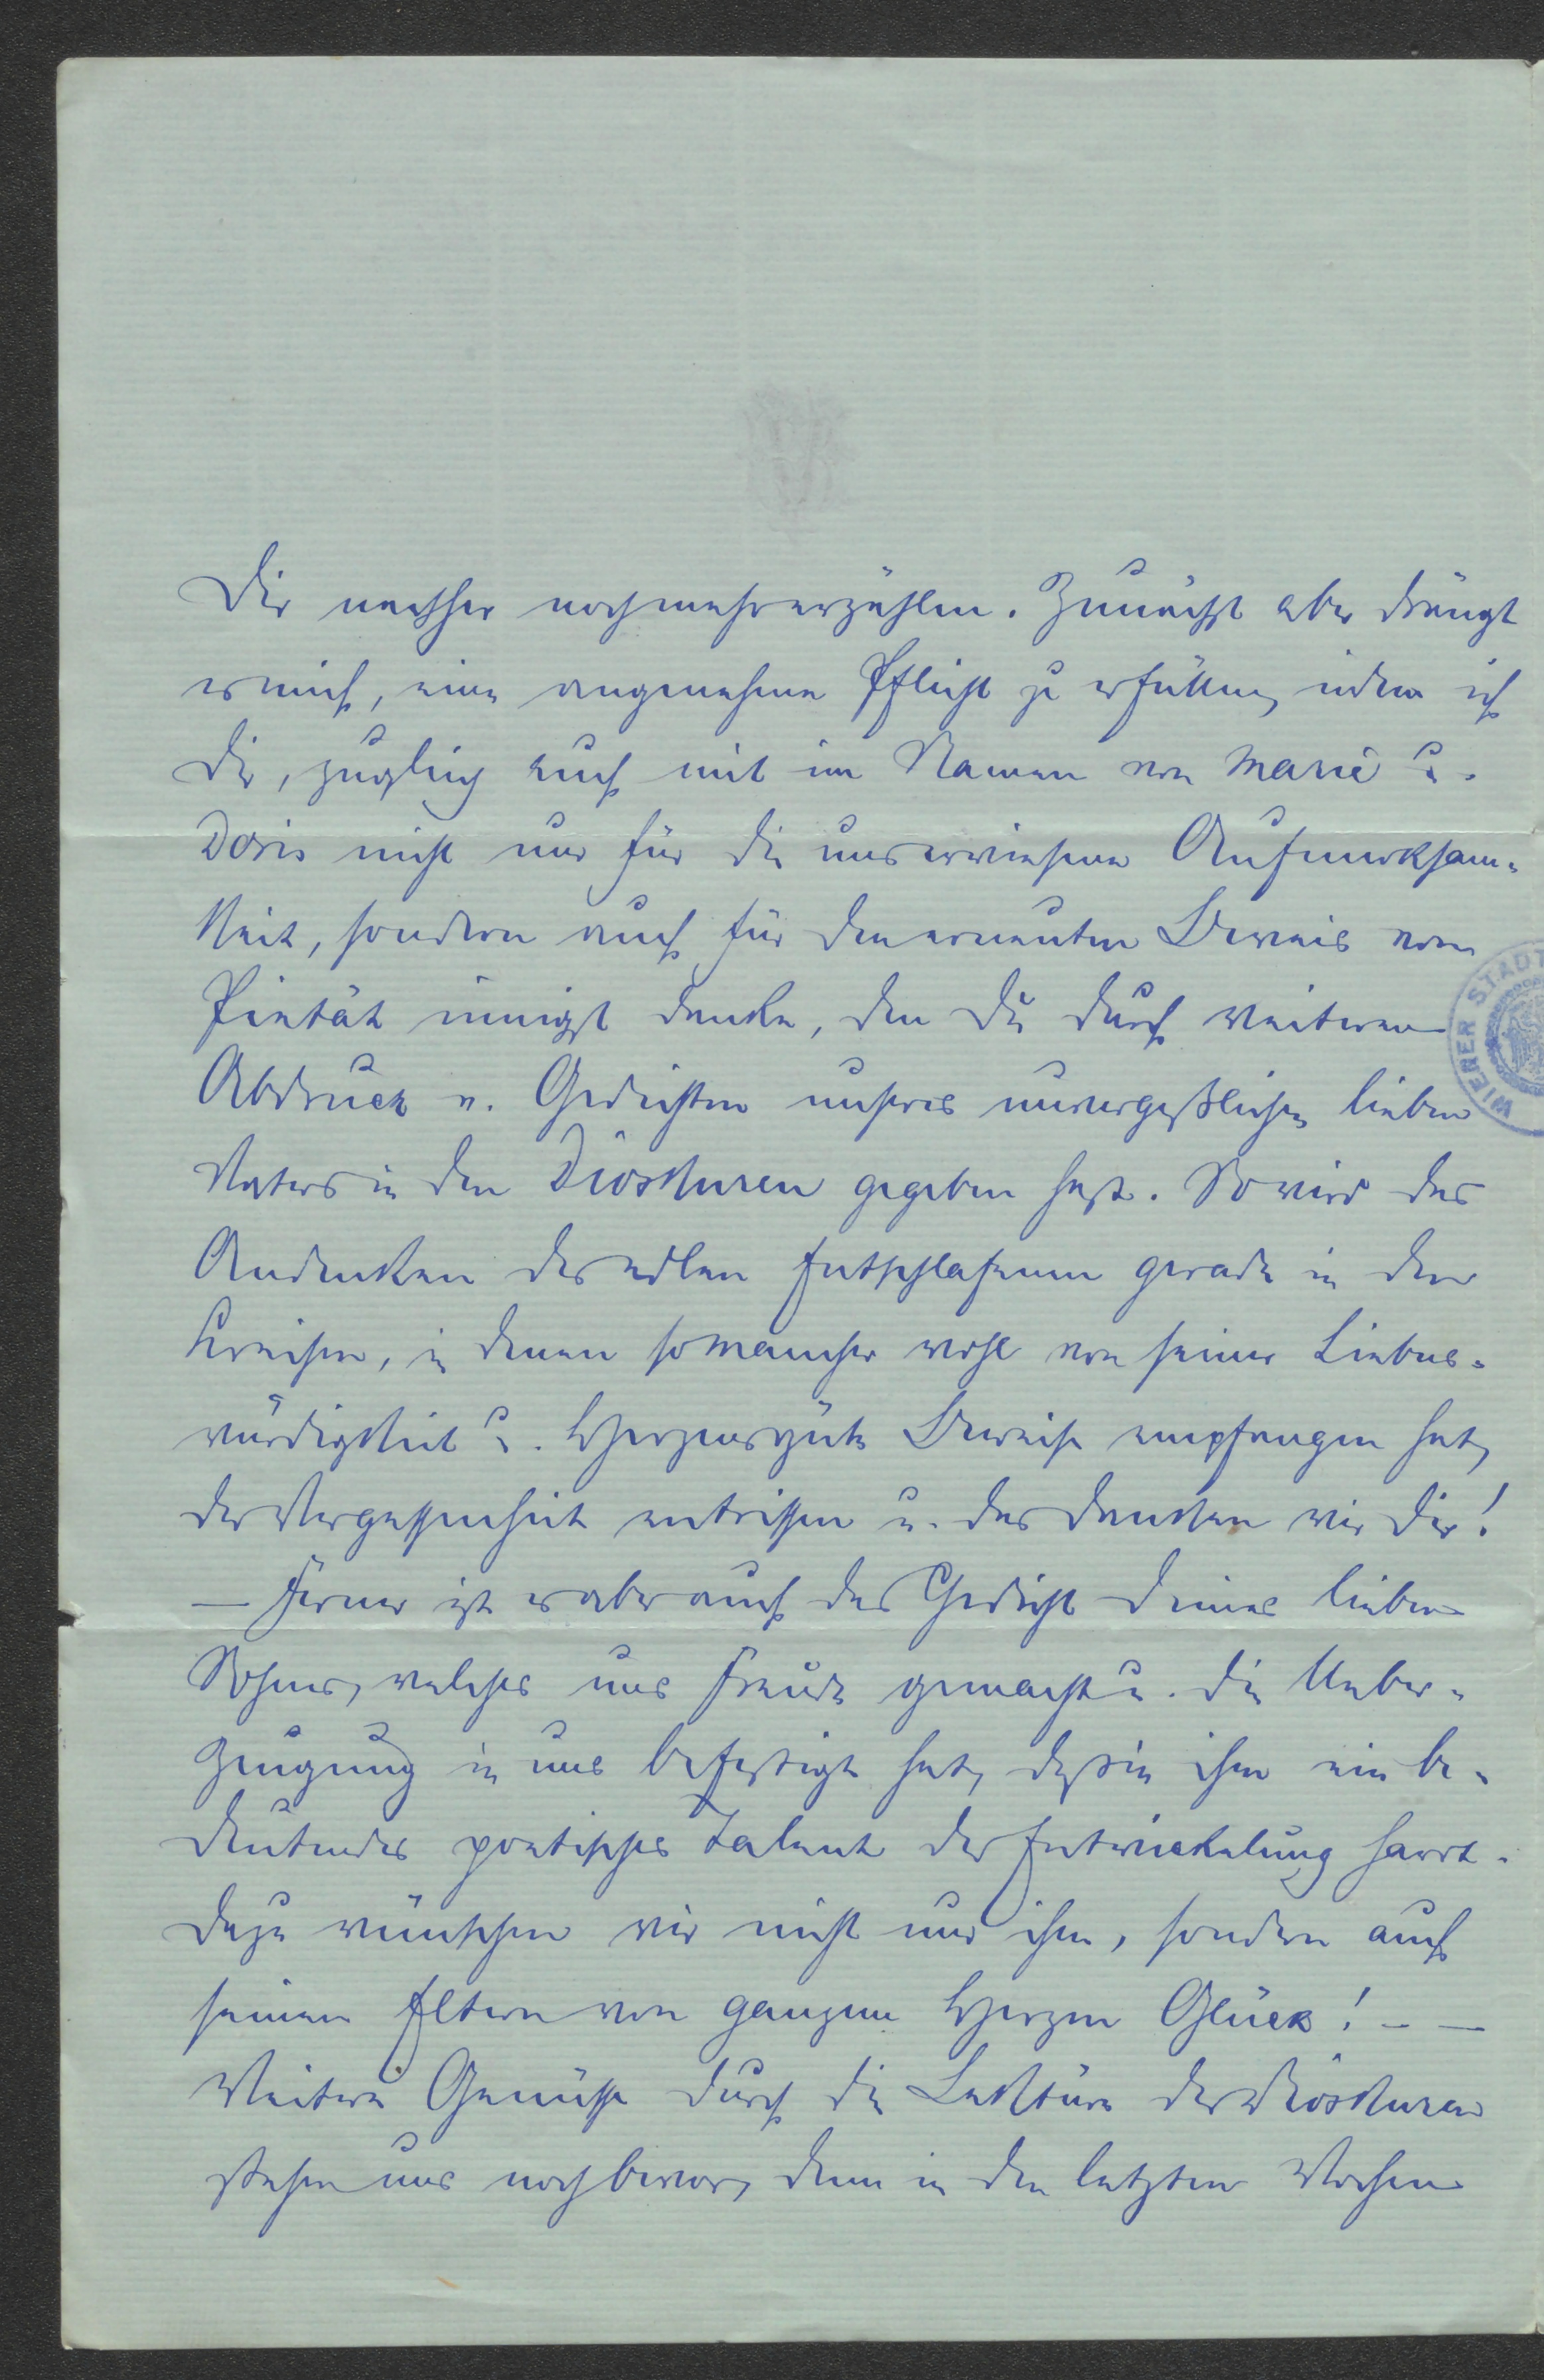 Dir nachher noch mehr erzählen. Zunächst aber drängt
es mich, eine angenehme Pflicht zu erfüllen, indem ich
Dir, zugleich auch mit im Namen von Marie u.
Doris nicht nur für die uns erwiesene Aufmerksam-
keit, sondern auch für den erneuten Beweis von
Pietät innigst danke, den Du durch weiteren
Abdruck v. Gedichten unseres unvergeßlichen lieben
Vaters in den Dioskuren gegeben hast. So wird das
Andenken des edlen Entschlafenen gerade in den
Kreisen, in denen so mancher wohl von seiner Liebens-
würdigkeit u. Herzensgüte Beweise empfangen hat,
der Vergessenheit entrissen u. das danken wir Dir!
— Ferner ist es aber auch das Gedicht Deines lieben
Sohnes, welches uns Freude gemacht u. die Ueber-
zeugung in uns befestigt hat, daß in ihm ein be-
deutendes poetisches Talent der Entwickelung harrt.
Dazu wünschen wir nicht nur ihm, sondern auch
seinen Eltern von ganzem Herzen Glück! — —
Weitere Genüsse durch die Lektüre der Dioskuren
stehen uns noch bevor, denn in den letzten Wochen
WIENER STADT